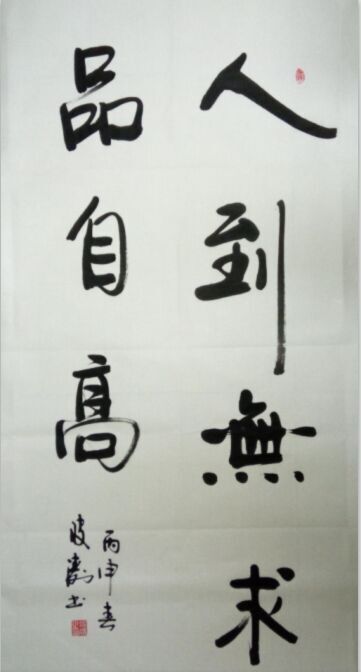 人到無求
品自高
丙申春
書